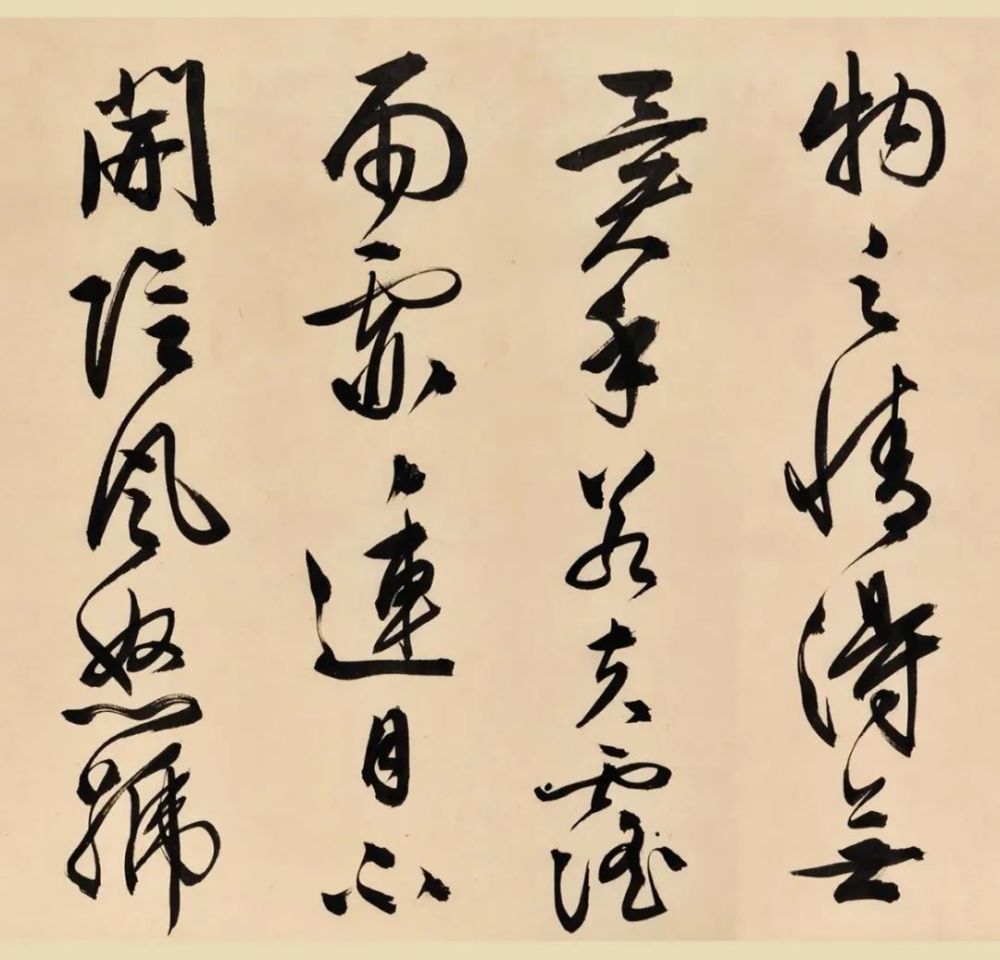 物之情得無
異乎若夫霪
雨霏霏連月不
開陰風怒號